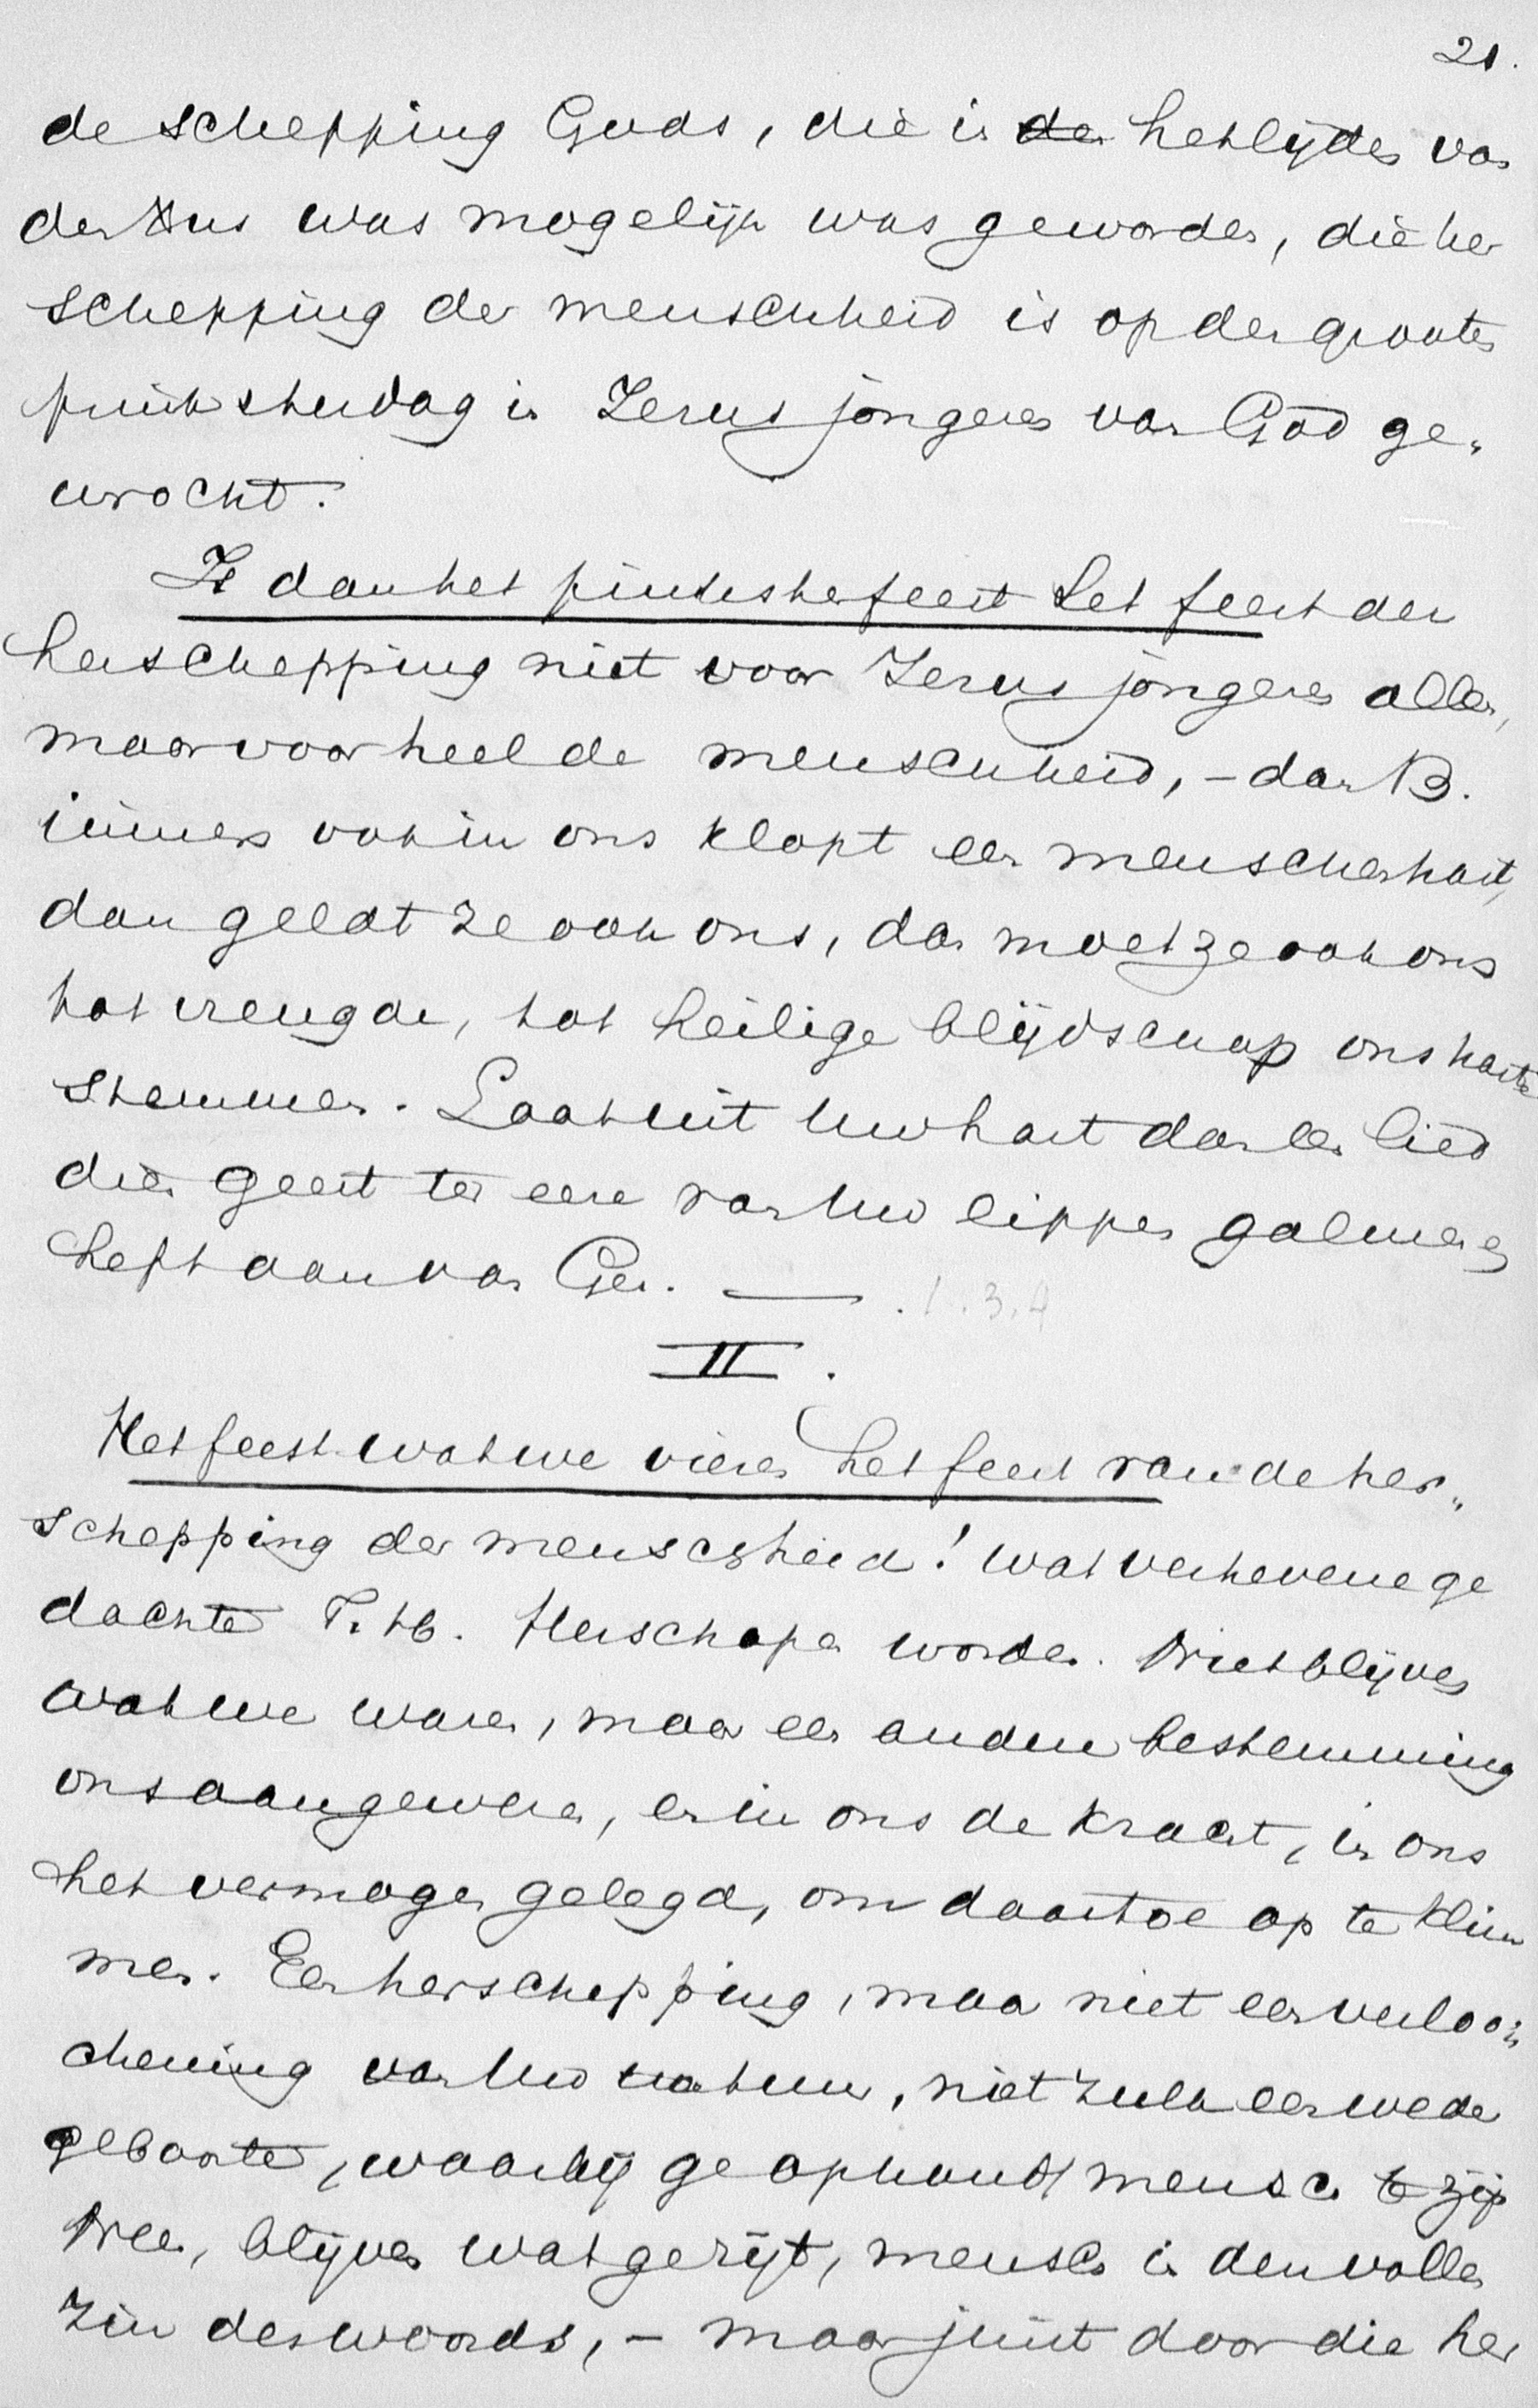 21.
de schepping Gods, die in de het lijden van
den Xus was mogelijk was geworden, die her
schepping der menschheid is op den grooten
pinksterdag in Jezus jongeren van God ge„
wrocht.
Is dan het pinksterfeest het feest der
herschepping niet voor Jezus jongeren alleen,
maar voor heel de menschheid, – dan B.
immers ook in ons klopt een menschenhart,
dan geldt ze ook ons, dan moet ze ook ons
tot vreugde, tot heilige blijdschap ons harte
stemmen. Laat uit Uw hart dan een lied
dien geest ter eere van Uw lippen galmen en
heft aan van Gez. —— . 1.3.4
II.
Het feest wat we vieren het feest van de her„
schepping der menschheid! Wat verhevene ge
dachte T. H. Herschapen worden. Niet blijven
wat we waren, maar een andere bestemming
ons aangewezen, en in ons de kracht, in ons
het vermogen gelegd, om daartoe op te klim
men. Een herschepping, maar niet een verloo
chening van Uw natuur, niet zulk een weder
geboorte, waarbij ge ophoudt mensch te zijn
Neen, blijven wat ge zijt, mensch in den vollen
zin des woords, – maar juist door die her